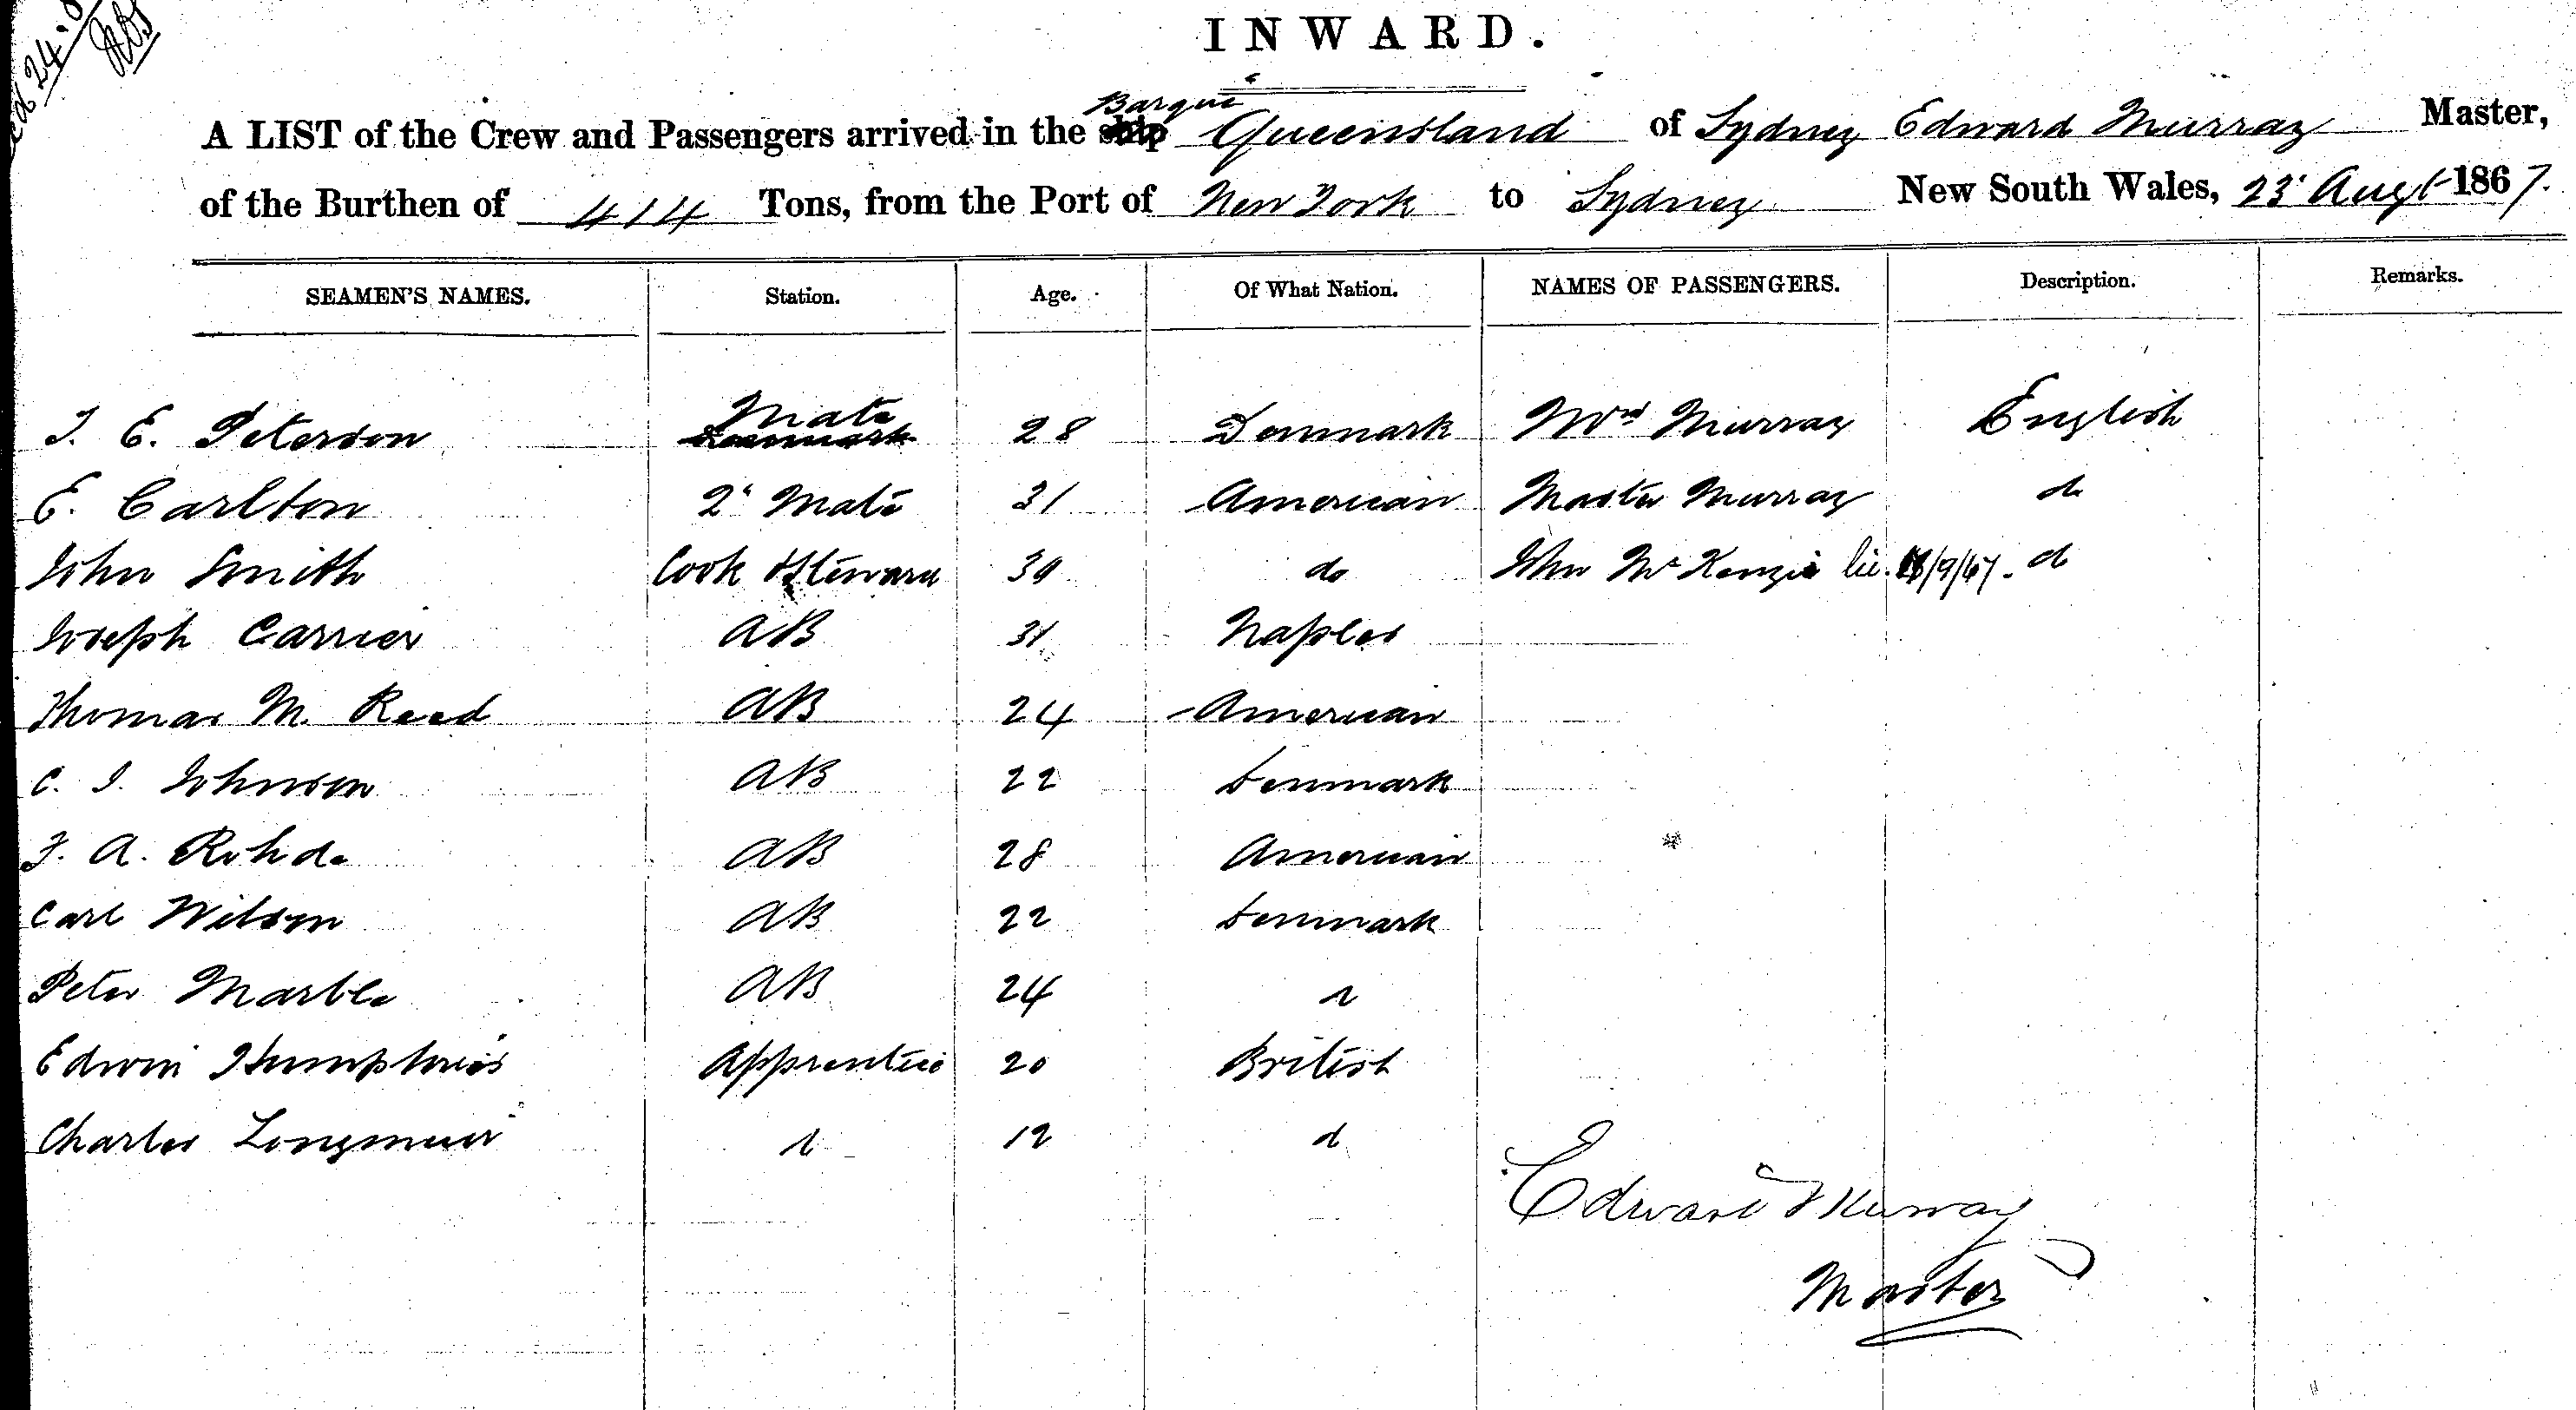 24.8
INWARD.
Barque
A LIST of the Crew and Passengers arrived in the ship Queensland of Sydney Edward Murray Master,
of the Burthen of 414 Tons, from the Port of New York to Sydney New South Wales, 23 Augt 1867.
SEAMEN'S NAMES. Station. Age. Of What Nation. NAMES OF PASSENGERS. Description. Remarks.
J. E. Peterson Mate Denmark 28 Denmark Mrs Murray English
E. Carlton 2d Mate 31 American Master Murray do
John Smith Cook & Steward 39 do John McKenzie lic. /9/67. do
Joseph Carrier AB 31 Naples
Thomas M. Reed AB 24 American
C. J. Johnson AB 22 Denmark
F. A. Rohde AB 28 American
Carl Wilson AB 22 Denmark
Peter Marble AB 24 do
Edwin Humphries Apprentice 20 British
Charles Longmuir do 12 do
Edward Murray
Master